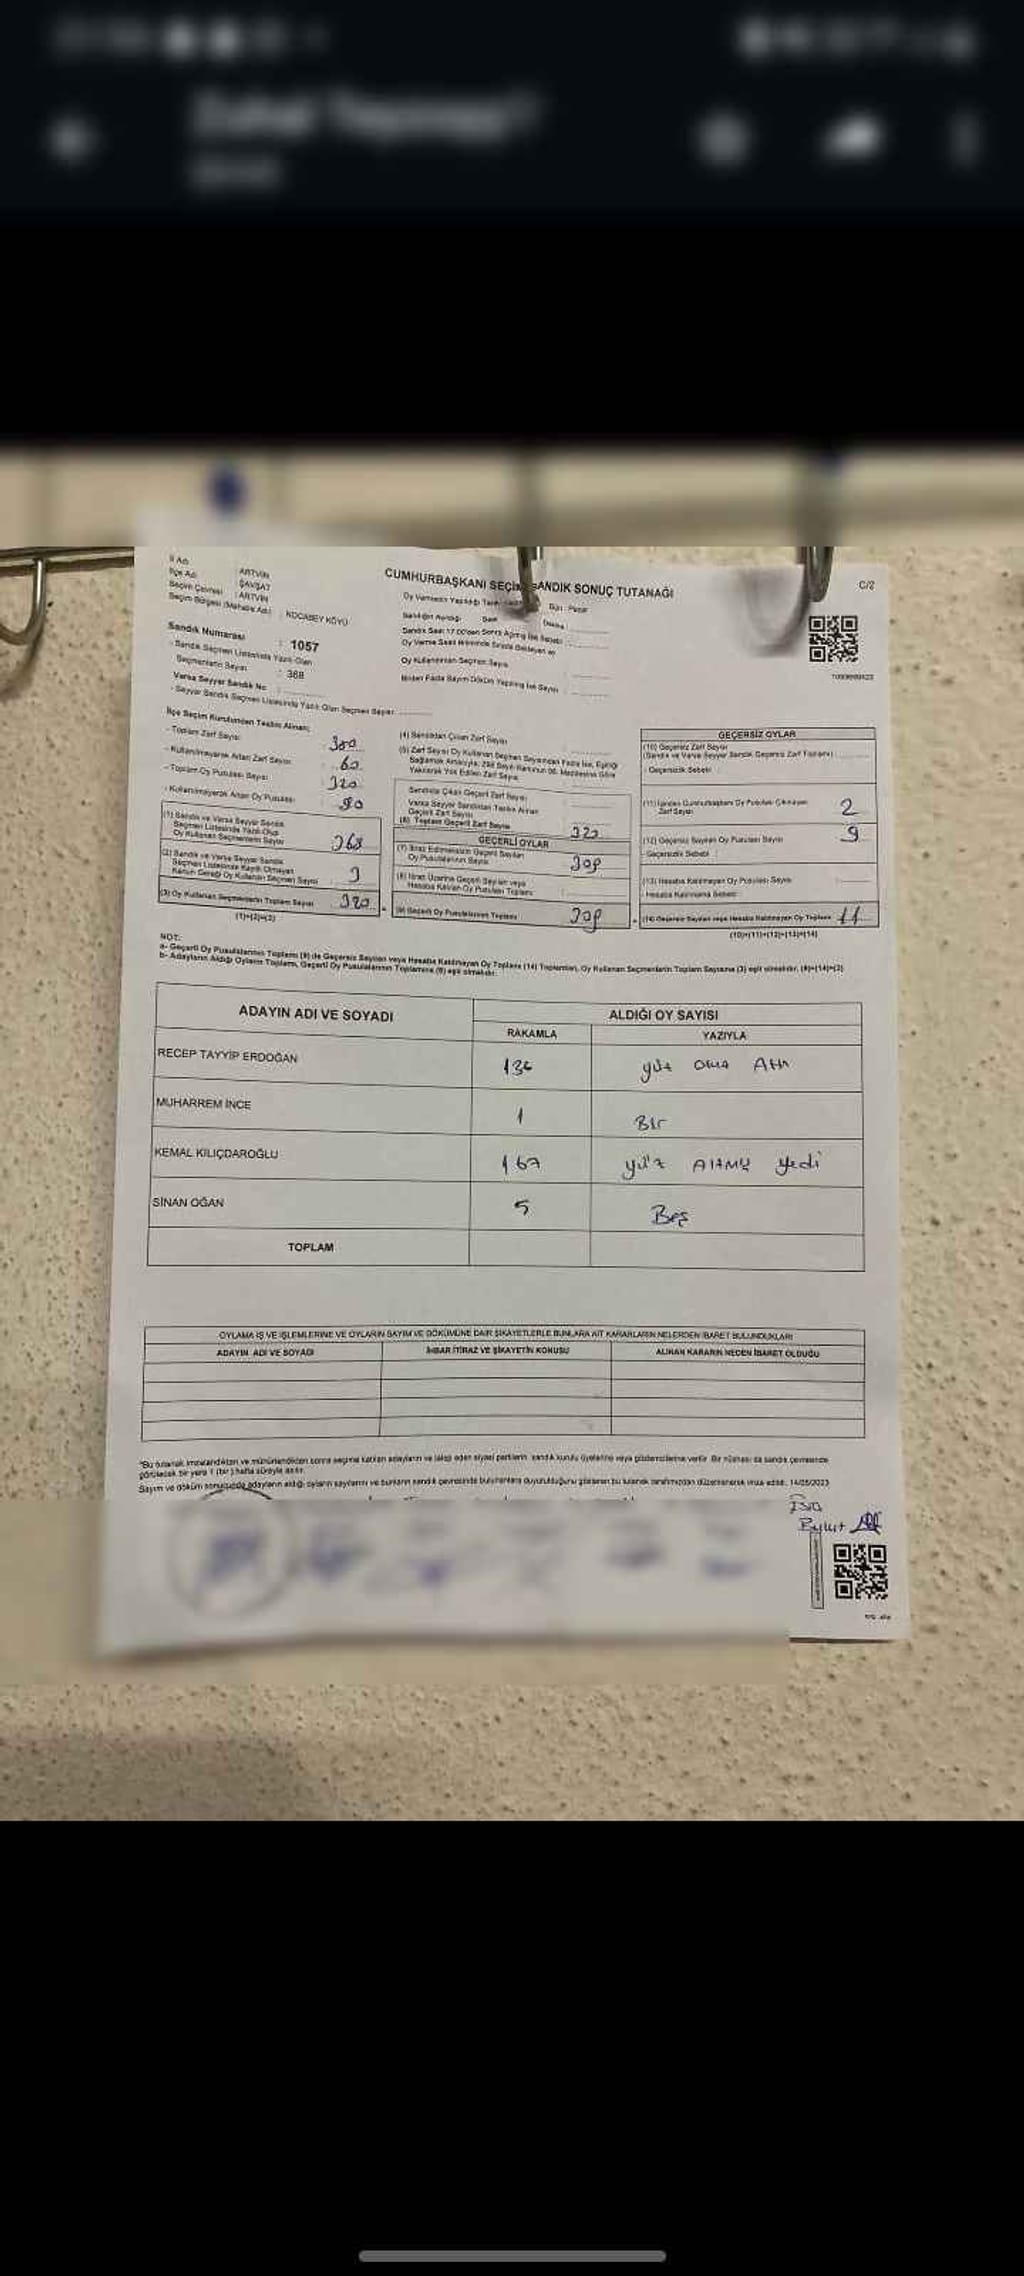 İl Adı : ARTVİN
İlçe Adı : ŞAVŞAT
Seçim Çevresi : ARTVİN
Seçim Bölgesi (Mahalle Adı) : KOCABEY KÖYÜ
Sandık Numarası : 1057
- Sandık Seçmen Listesinde Yazılı Olan
Seçmenlerin Sayısı : 368
Varsa Seyyar Sandık No :
- Seyyar Sandık Seçmen Listesinde Yazılı Olan Seçmen Sayısı
CUMHURBAŞKANI SEÇİMİ SANDIK SONUÇ TUTANAĞI
C/2
Oy Vermenin Yapıldığı
Gün : Pazar
Sandığın Açıldığı Saat
Oy Kullandırılan Seçmen Sayısı
Birden Fazla Sayım Döküm Yapılmış İse Sayısı
İlçe Seçim Kurulundan Teslim Alınan;
- Toplam Zarf Sayısı : 380
- Kullanılmayarak Artan Zarf Sayısı : 60
- Toplam Oy Pusulası Sayısı
- Kullanılmayarak Artan Oy Pusulası
(1) Sandık ve Varsa Seyyar Sandık
Seçmen Listesinde Yazılı Olup
Oy Kullanan Seçmenlerin Sayısı
(2) Sandık ve Varsa Seyyar Sandık
Seçmen Listesinde Kayıtlı Olmayan
Kanun Gereği Oy Kullanan Seçmen Sayısı
(3) Oy Kullanan Seçmenlerin Toplam Sayısı 320
(1)+(2)=(3)
(4) Sandıktan Çıkan Zarf Sayısı
(5) Zarf Sayısı Oy Kullanan Seçmen Sayısından Fazla İse, Eşitliği
Sağlamak Amacıyla, 298 Sayılı Kanunun 98. Maddesine Göre
Yakılarak Yok Edilen Zarf Sayısı
Sandıkta Çıkan Geçerli Zarf Sayısı
Varsa Seyyar Sandıktan Teslim Alınan
Geçerli Zarf Sayısı
(6) Toplam Geçerli Zarf Sayısı 320
GEÇERLİ OYLAR
(7) İtiraz Edilmeksizin Geçerli Sayılan
Oy Pusulalarının Sayısı 309
(8) İtiraz Üzerine Geçerli Sayılan veya
Hesaba Katılan Oy Pusulası Toplamı
(9) Geçerli Oy Pusulalarının Toplamı 309
GEÇERSİZ OYLAR
(10) Geçersiz Zarf Sayısı
(Sandık ve Varsa Seyyar Sandık Geçersiz Zarf Toplamı)
- Geçersizlik Sebebi :
(11) İçinden Cumhurbaşkanı Oy Pusulası Çıkmayan
Zarf Sayısı 2
(12) Geçersiz Sayılan Oy Pusulası Sayısı 9
- Geçersizlik Sebebi :
(13) Hesaba Katılmayan Oy Pusulası Sayısı
- Hesaba Katılmama Sebebi
(14) Geçersiz Sayılan veya Hesaba Katılmayan Oy Toplamı 11
(10)+(11)+(12)+(13)=(14)
NOT:
a- Geçerli Oy Pusulalarının Toplamı (9) ile Geçersiz Sayılan veya Hesaba Katılmayan Oy Toplamı (14) Toplamları, Oy Kullanan Seçmenlerin Toplam Sayısına (3) eşit olmalıdır. (9)+(14)=(3)
b- Adayların Aldığı Oyların Toplamı, Geçerli Oy Pusulalarının Toplamına (9) eşit olmalıdır.
ADAYIN ADI VE SOYADI
ALDIĞI OY SAYISI
RAKAMLA
YAZIYLA
RECEP TAYYİP ERDOĞAN 136 yüz otuz Altı
MUHARREM İNCE 1 Bir
KEMAL KILIÇDAROĞLU 167 yüz Altmış yedi
SİNAN OĞAN 5 Beş
TOPLAM
OYLAMA İŞ VE İŞLEMLERİNE VE OYLARIN SAYIM VE DÖKÜMÜNE DAİR ŞİKAYETLERLE BUNLARA AİT KARARLARIN NELERDEN İBARET BULUNDUKLARI
ADAYIN ADI VE SOYADI
İHBAR İTİRAZ VE ŞİKAYETİN KONUSU
ALINAN KARARIN NEDEN İBARET OLDUĞU
*Bu tutanak imzalandıktan ve mühürlendikten sonra seçime katılan adayların ve talep eden siyasi partilerin sandık kurulu üyelerine veya gözlemcilerine verilir. Bir nüshası da sandık çevresinde
görülecek bir yere 1 (bir) hafta süreyle asılır.
Sayım ve döküm sonucunda adayların aldığı oyların sayılarını ve bunların sandık çevresinde bulunanlara duyurulduğunu gösteren bu tutanak tarafımızdan düzenlenerek imza edildi. 14/05/2023